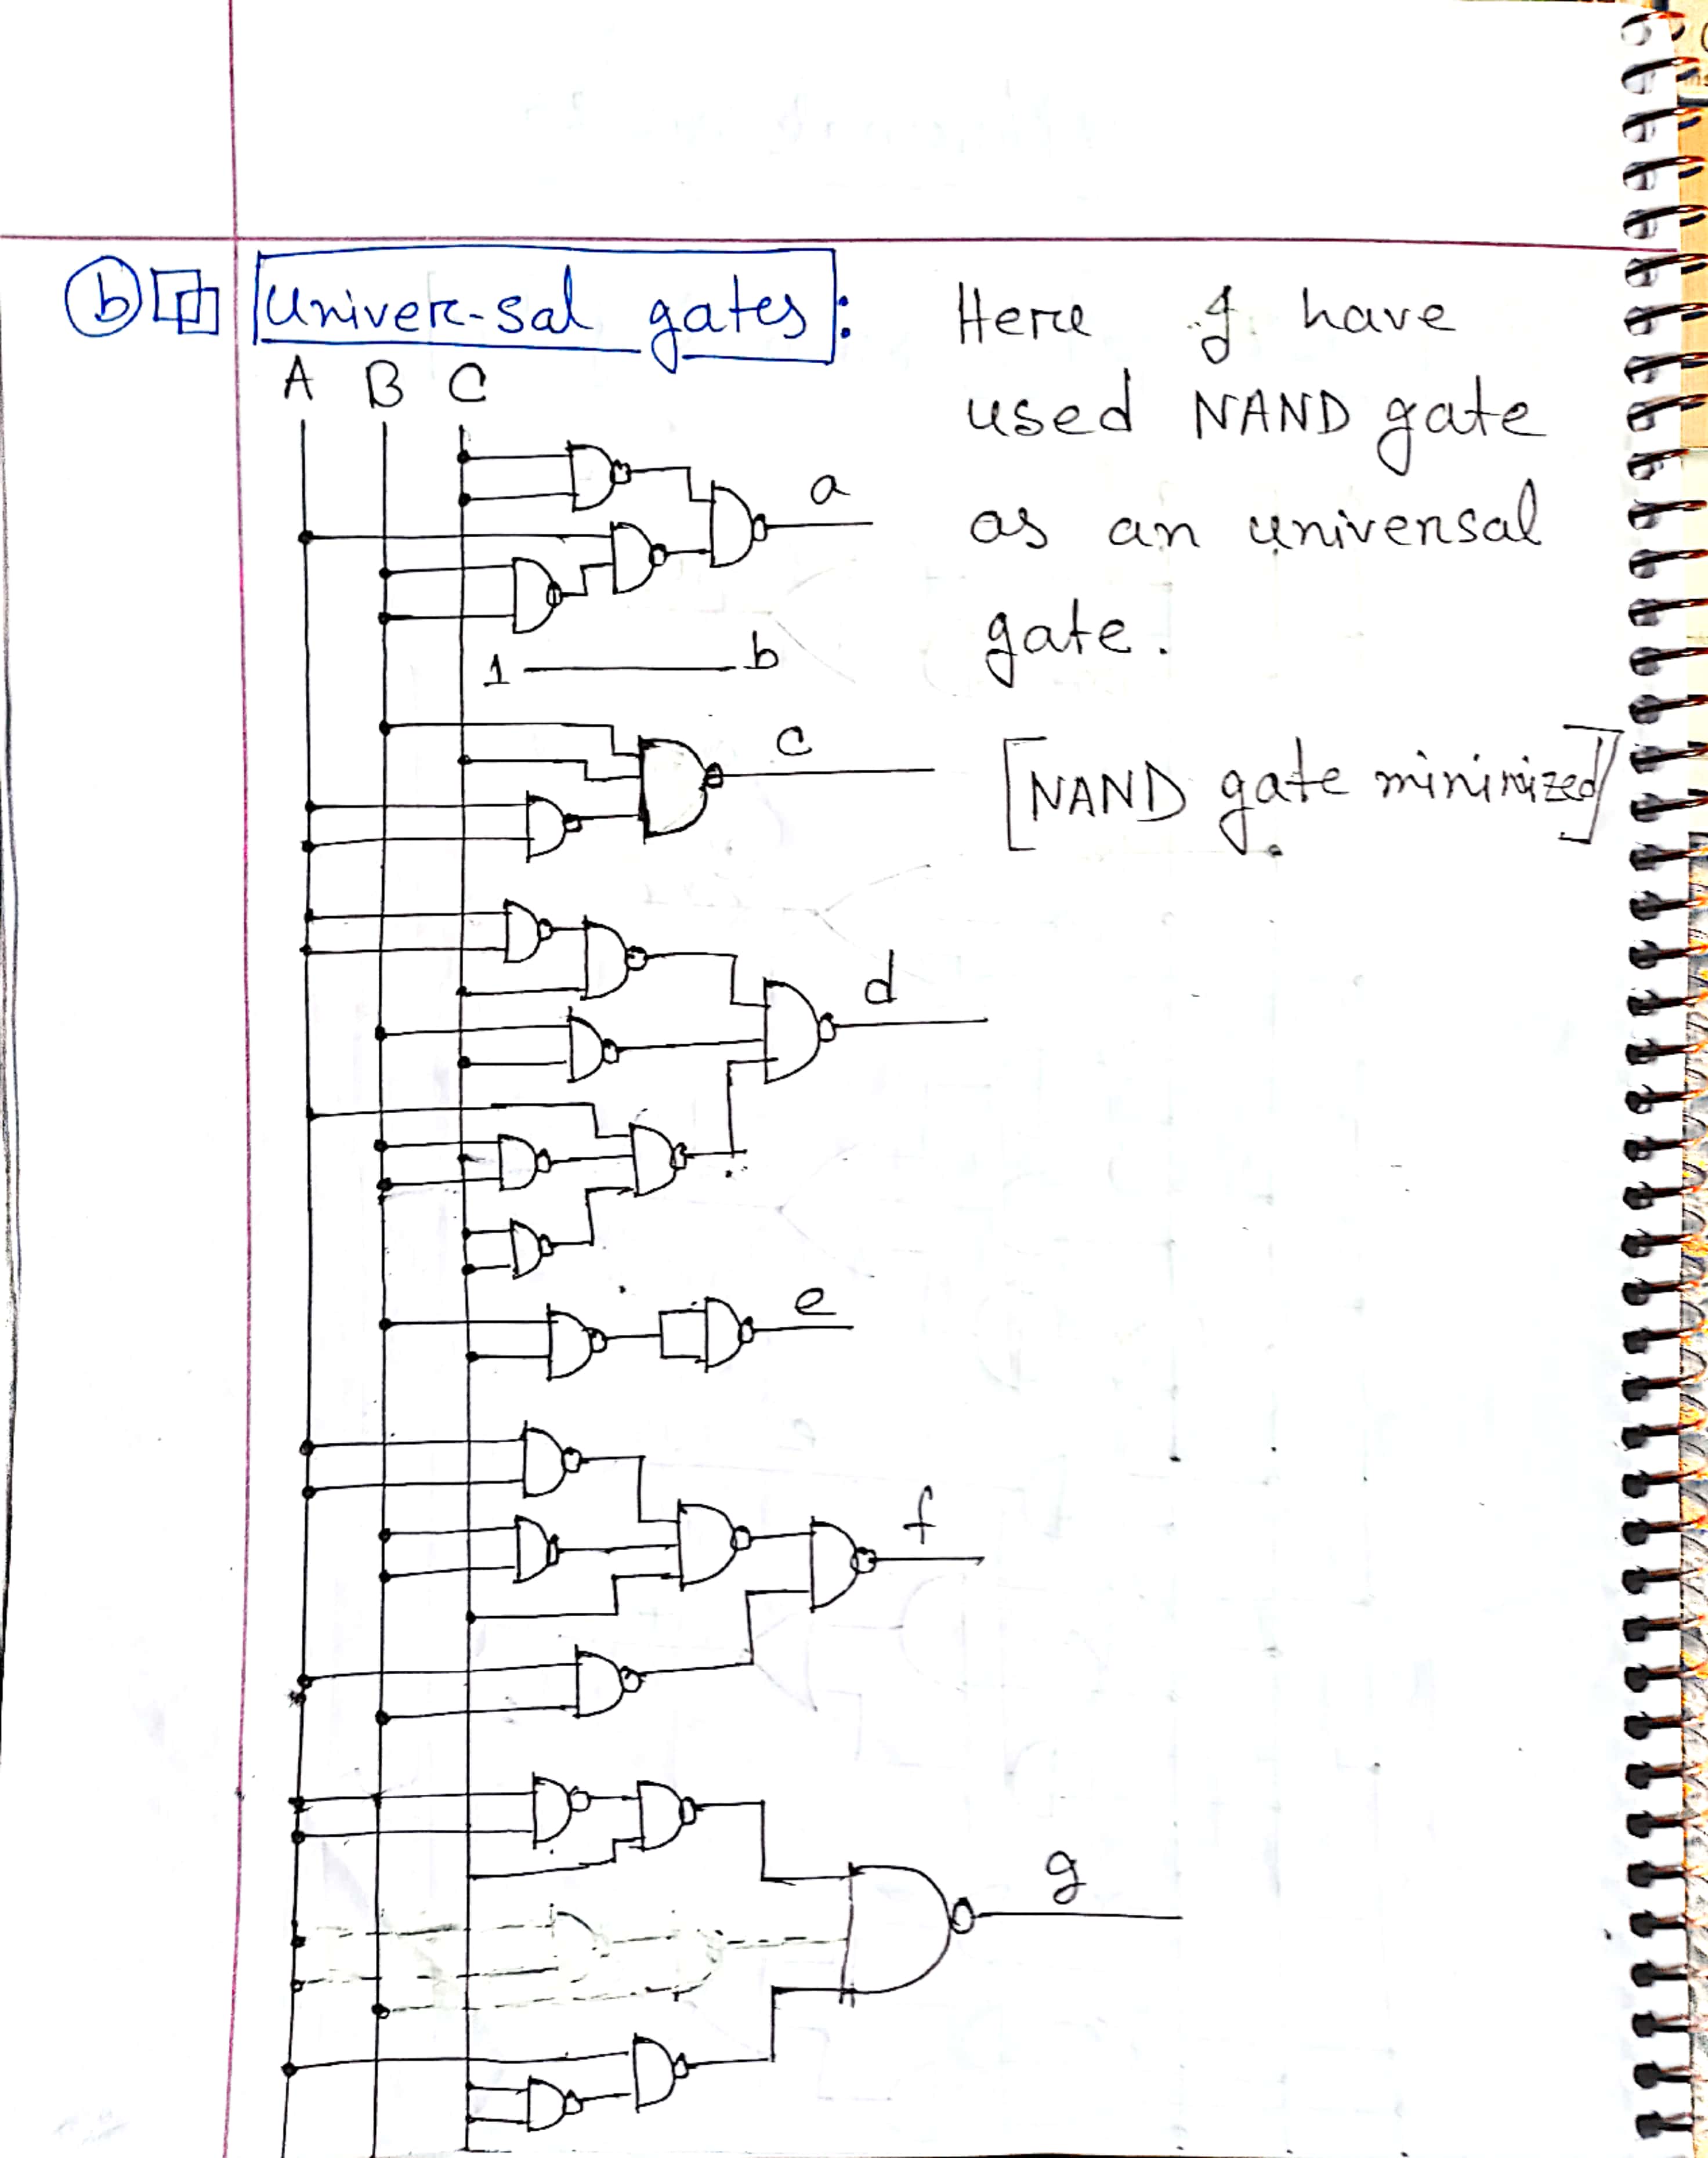 b Univer-sal gates:
Here I have
used NAND gate
as an universal
gate.
[NAND gate minimized]
A B C
a
1 b
c
d
e
f
g